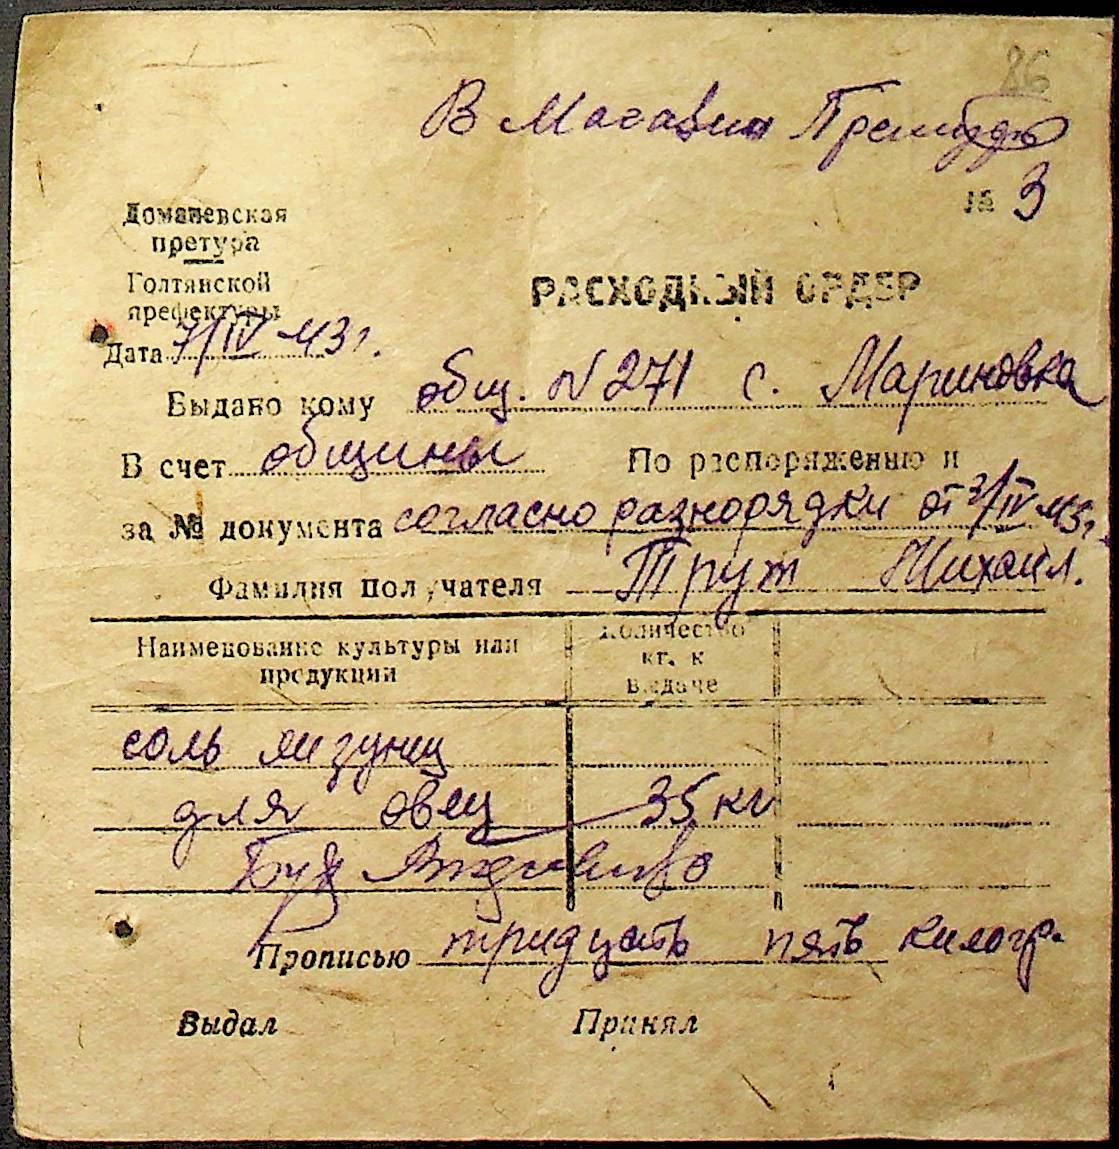 86
В Магазин
№ 3
Доманевская
претура
Голтянской
префектуры
РАСХОДНЫЙ ОРДЕР
Дата 7/IV-43 г.
Выдано кому общ. N 271 с. Мариновка
В счет общины По распоряжению и
за № документа согласно разнорядки от 3/IV-43 г.
Фамилия получателя Трут Михаил.
Наименование культуры или
продукции
Количество
кг. к
выдаче
соль лизунец
для овец 35 кг
Прописью тридцать пять килогр.
Выдал Принял